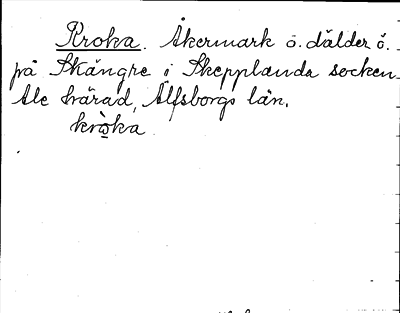 Kroka. Åkermark o. dälder ö.
på Skångre i Skepplanda socken
Ale härad, Älfsborgs län.
kròka